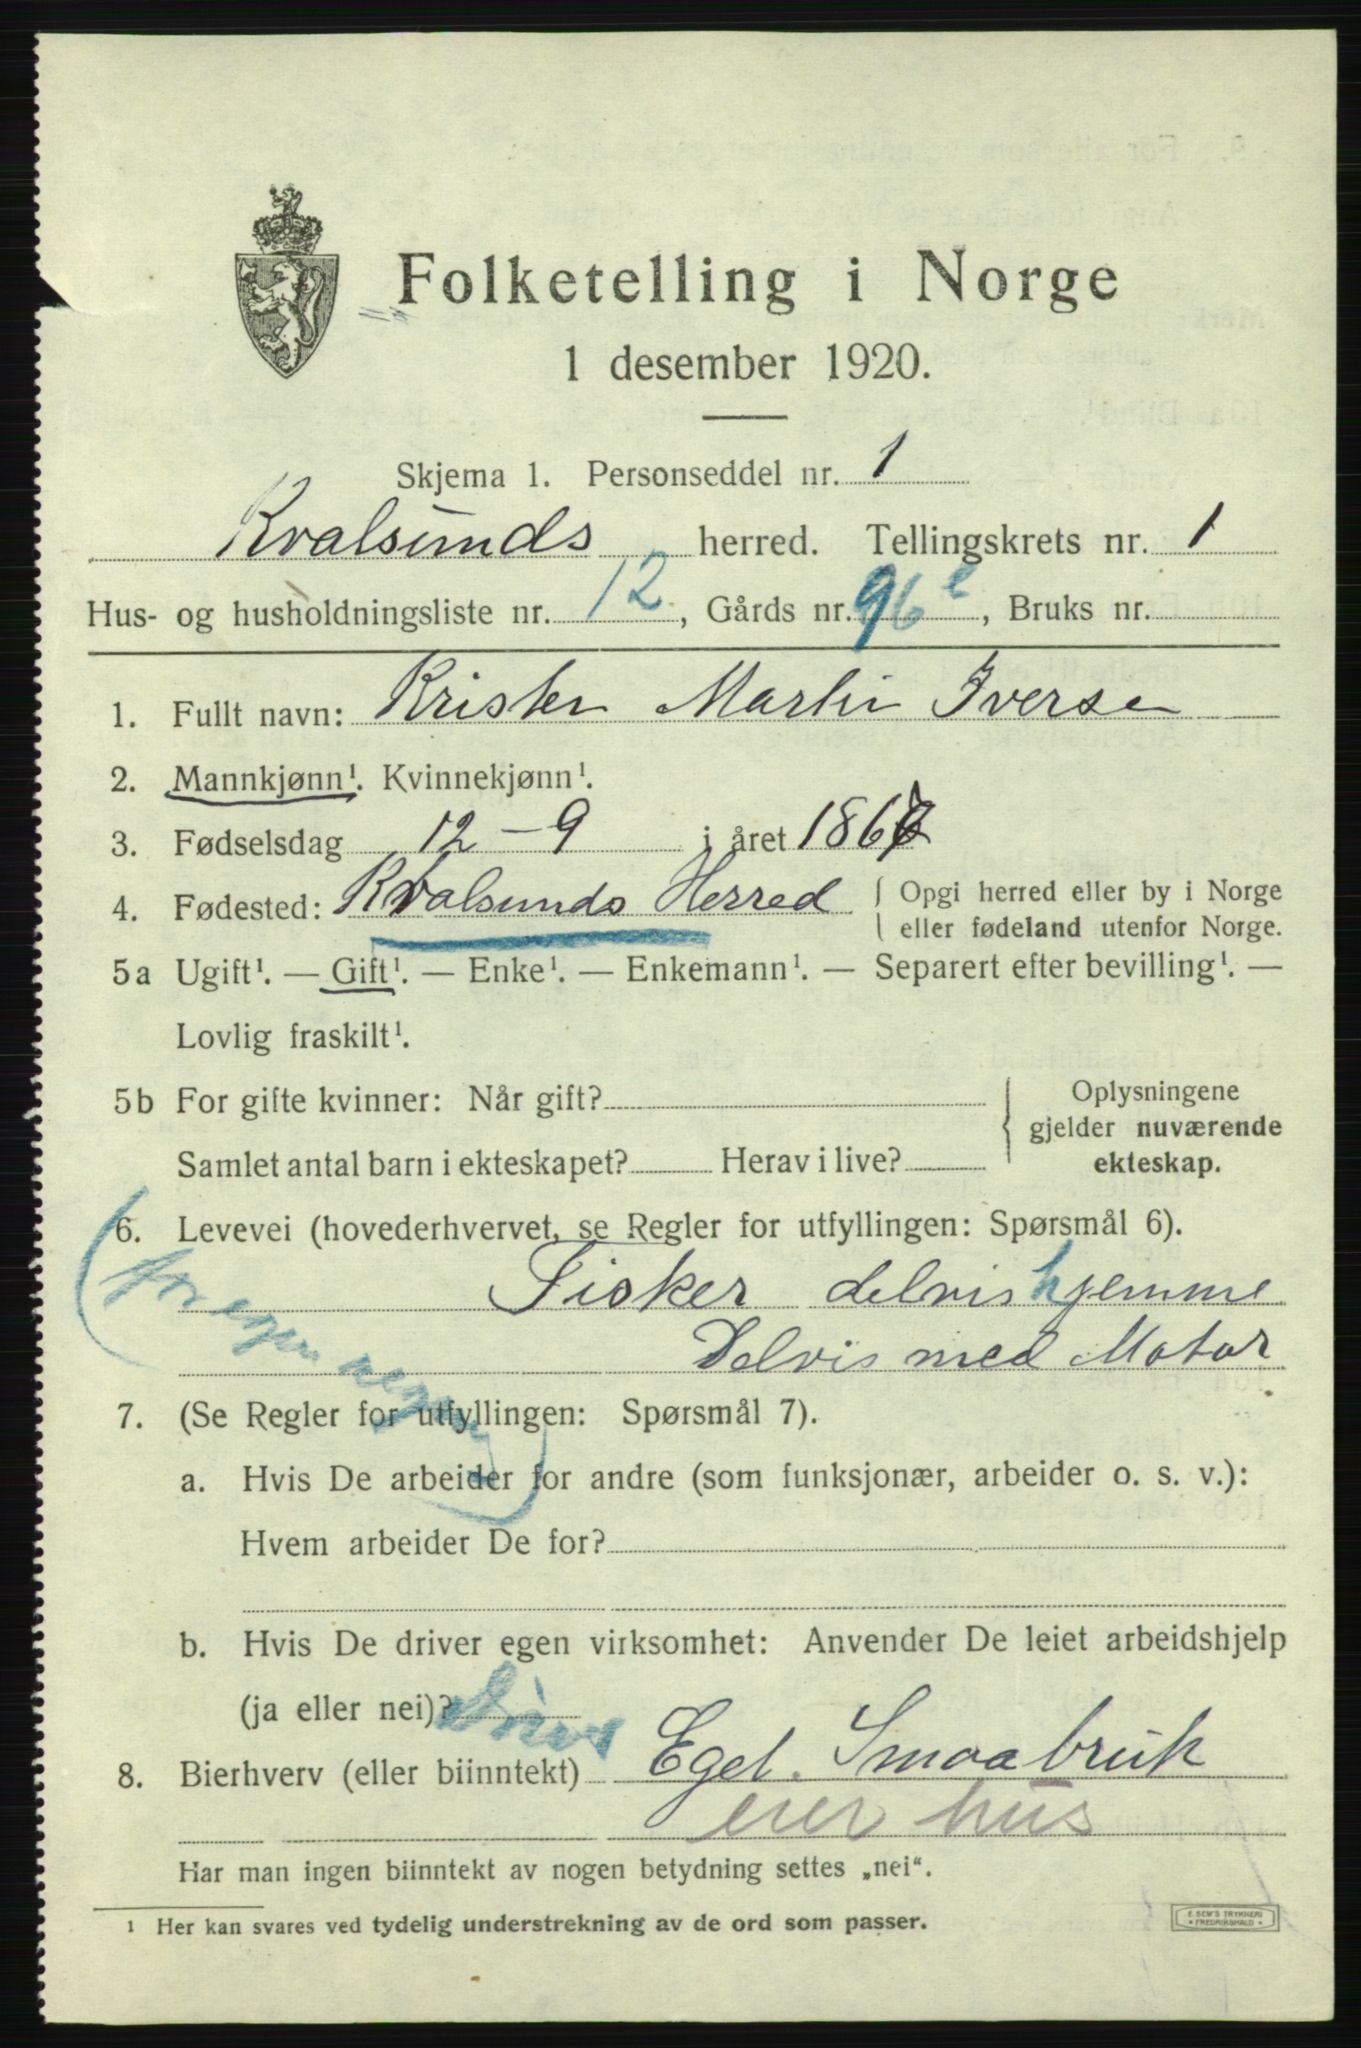 Folketelling i Norge
1 desember 1920.
Skjema 1. Personseddel nr. 1
Kvalsunds herred. Tellingskrets nr. 1
Hus- og husholdningsliste nr. 12, Gårds nr. 96 e, Bruks nr.
1. Fullt navn: Kristen Martin Iversen
2. Mannkjønn¹. Kvinnekjønn¹.
3. Fødselsdag 12 - 9 i året 186
4. Fødested: Kvalsunds Herred { Opgi herred eller by i Norge
eller fødeland utenfor Norge.
5a Ugift¹. — Gift¹. — Enke¹. — Enkemann¹. — Separert efter bevilling¹. —
Lovlig fraskilt¹.
5b For gifte kvinner: Når gift? { Oplysningene
gjelder nuværende
Samlet antal barn i ekteskapet? Herav i live? ekteskap.
6. Levevei (hovederhvervet, se Regler for utfyllingen: Spørsmål 6).
Fisker delvis hjemme
Delvis med Motor
(for egen regn)
7. (Se Regler for utfyllingen: Spørsmål 7).
a. Hvis De arbeider for andre (som funksjonær, arbeider o. s. v.):
Hvem arbeider De for?
b. Hvis De driver egen virksomhet: Anvender De leiet arbeidshjelp
(ja eller nei)?
8. Bierhverv (eller biinntekt) Eget. Smaabruk
eier hus
Har man ingen biinntekt av nogen betydning settes „nei“.
¹ Her kan svares ved tydelig understrekning av de ord som passer.
E. SEM'S TRYKKERI
FREDRIKSHALD